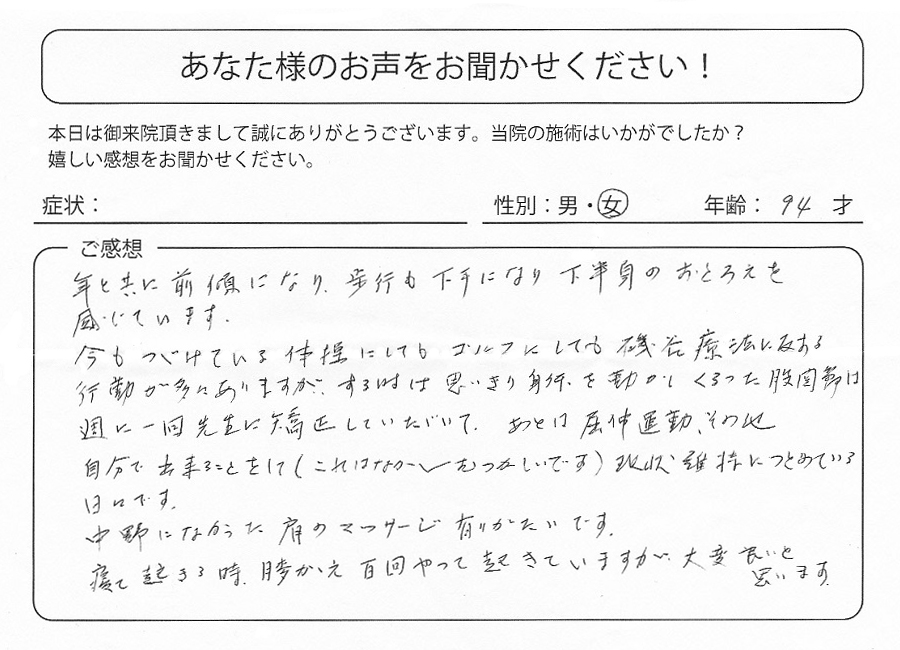 あなた様のお声をお聞かせください！
本日は御来院頂きまして誠にありがとうございます。当院の施術はいかがでしたか？
嬉しい感想をお聞かせください。
症状：
性別：男・女
年齢： 94 才
ご感想
年と共に前傾になり、歩行も下手になり下半身のおとろえを
感じています。
今もつづけている体操にしてもゴルフにしても磯谷療法に反する
行動が多々ありますが、する時は思いきり身体を動かしくるった股関節は
週に一回先生に矯正していただいて、あとは屈伸運動、その他
自分で出来ることをして（これはなかなかむつかしいです）現状維持につとめている
日々です。
中野になかった肩のマッサージ有りがたいです。
寝て起きる時、膝かかえ百回やって起きていますが、大変良いと
思います。